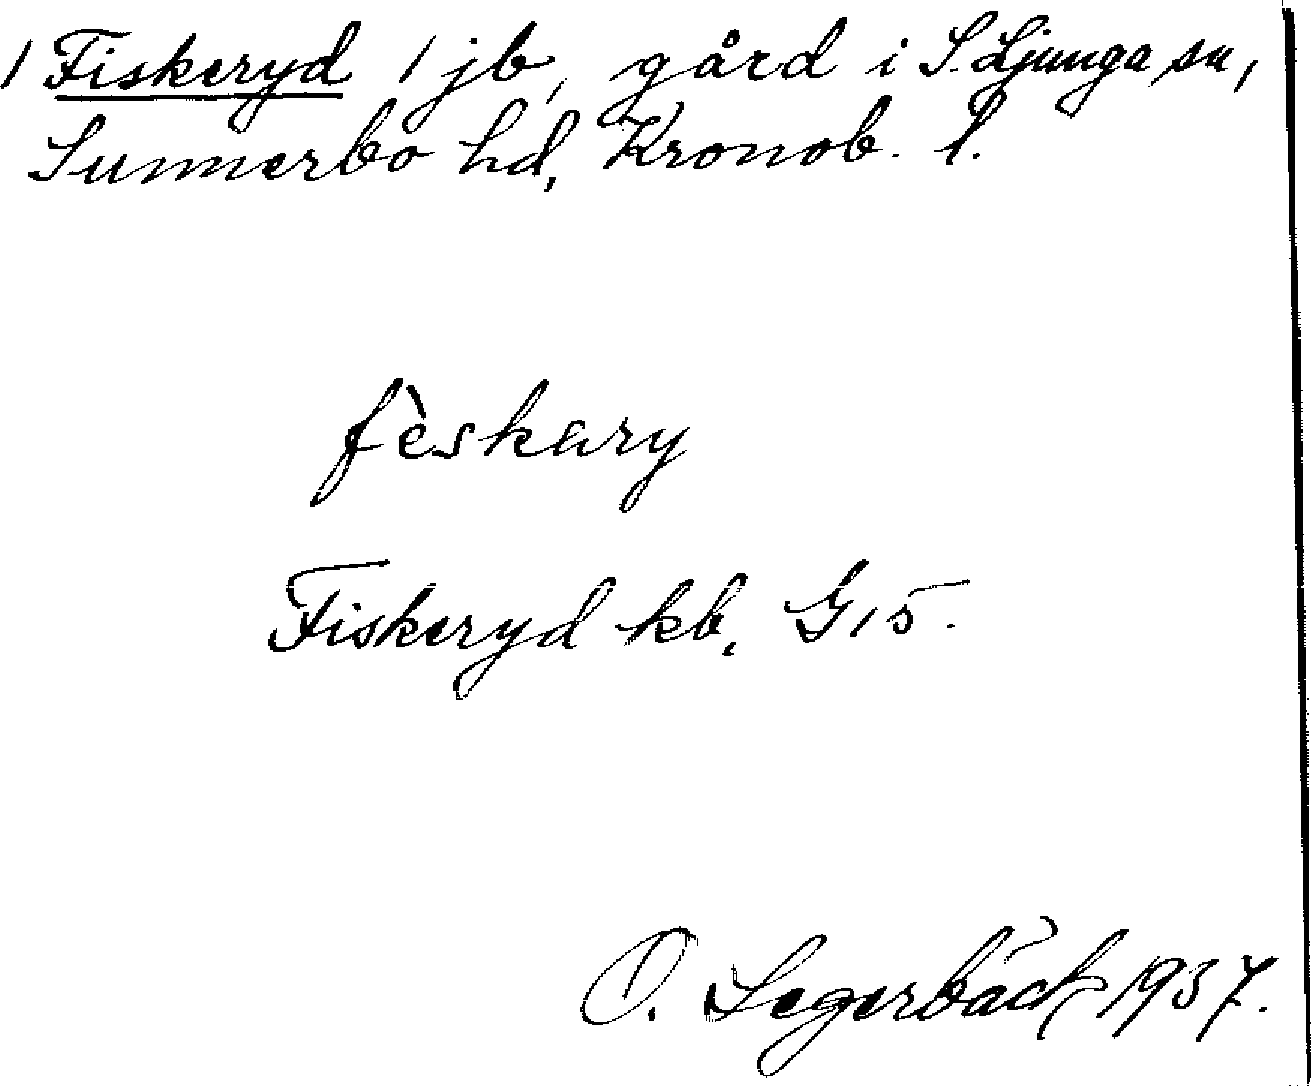 / Fiskeryd / jb, gård i S. Ljunga sn,
Sunnerbo hd, Kronob. l.
fèskary
Fiskeryd kb, G 15.
O. Segerbäck 1937.